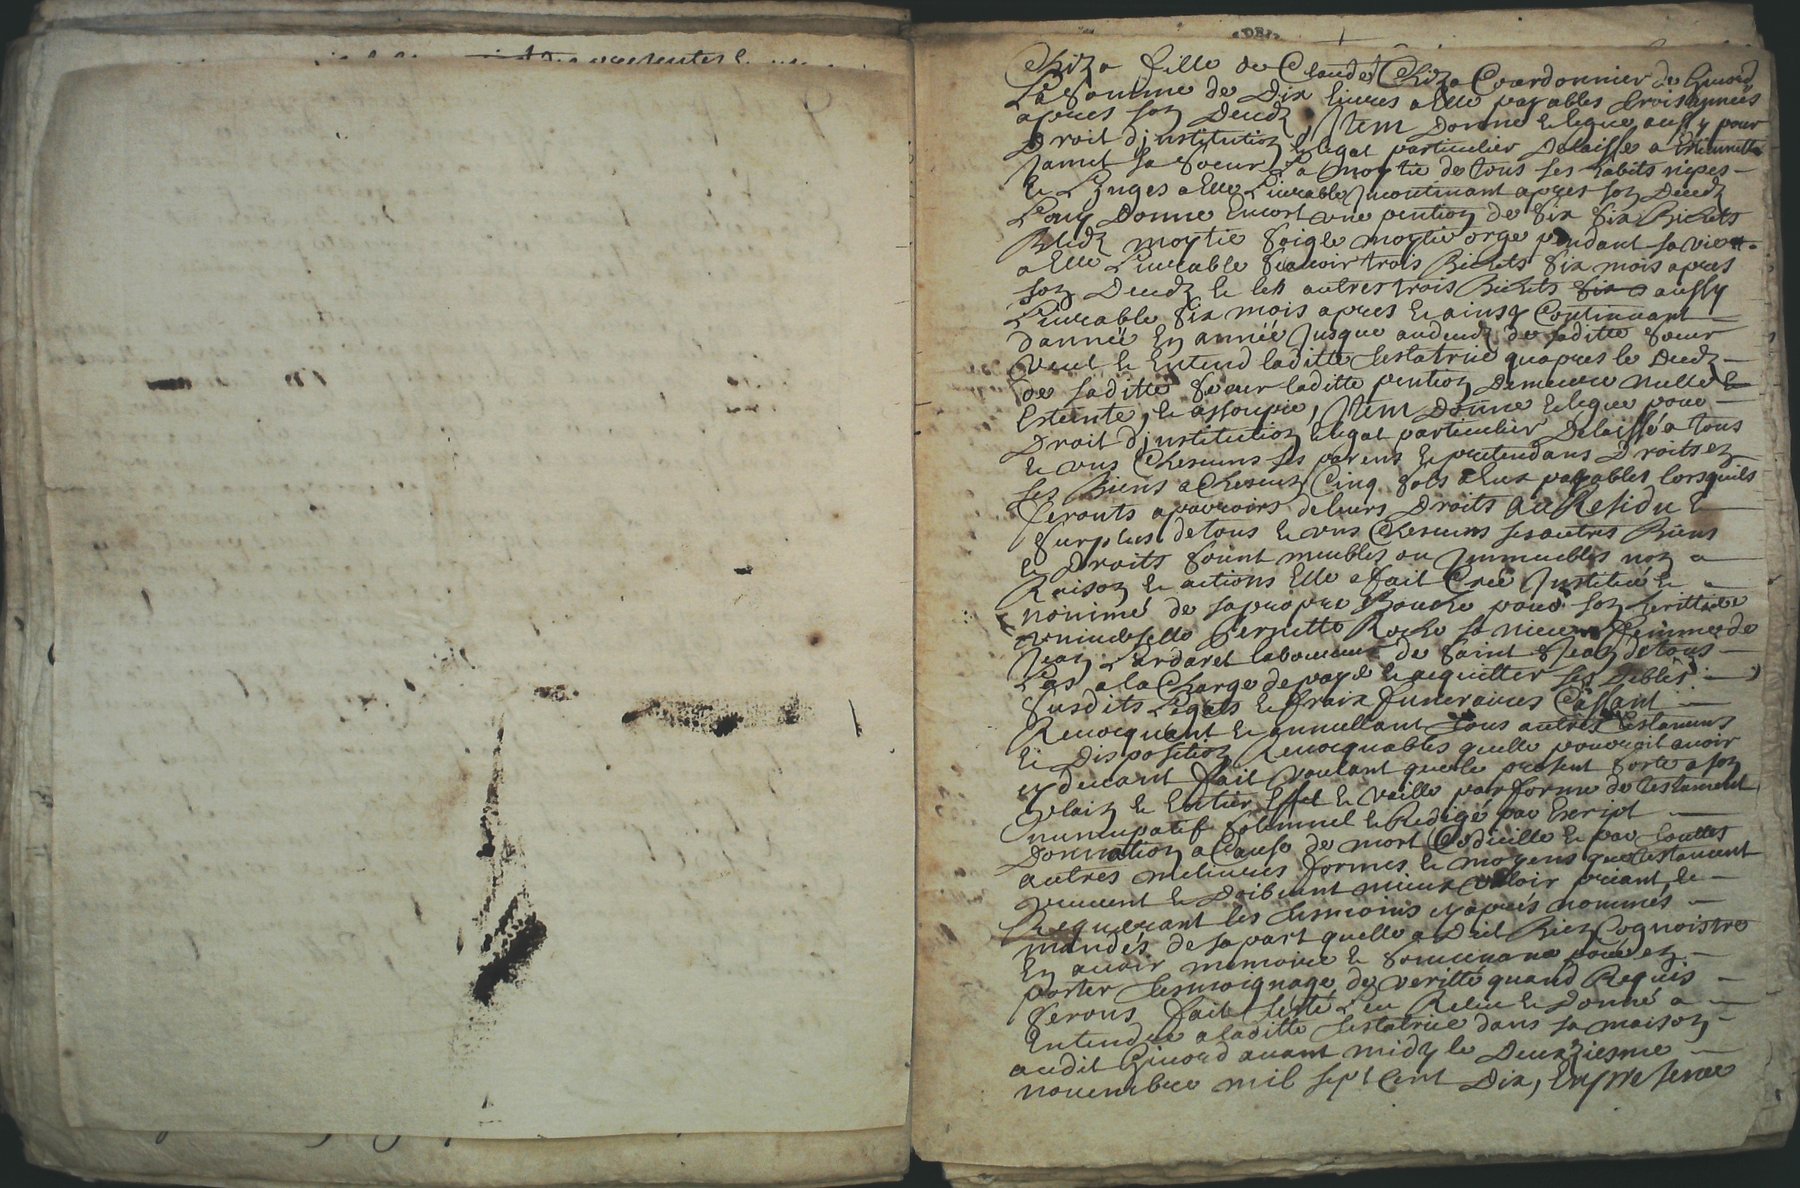 Chiza fille de Claude Chiza Courdonnier de Givord
La somme de Dix livres a Elle payables trois années
apres son Decedz, Item Donne et legue aussy pour
Droit d'institution et legat particulier Delaisse a Estiennette
Jamet sa soeur La moytie de tous ses habits nipes
et Linges a Elle Livrable Incontinant apres son Decedz
Luy Donne Encort une pention de six six Bichets
Bledz moytie soigle moytie orge pendant sa vie
a Elle Livrable scavoir trois Bichets six mois apres
son Decedz et les autres trois Bichets six aussy
Livrable six mois apres et ainsy Continuant
dannée En année Jusque audecedz de saditte soeur
Veut et Entend laditte testatrice quapres le Decedz
de saditte soeur laditte pention Demeure nulle
Esteinte, et assoupie, Item Donne et legue pour
Droit d'institution et legat particulier Delaissé a tous
et uns Chescuns ses parens et pretendans Droits en
ses Biens a Chescun Cinq sols a Eux payables lorsquils
feronts apparoir de leurs Droits Au Residu et
surplus de tous et uns Chescuns ses autres Biens
et Droits soint meubles ou Immeubles nom
Raison et actions Elle a fait Créé Institué et
nommé de sa propre Bouche pour son herittiere
universelle Pernette Roche sa niece femme de
Jean Lardaret laboureur de saint Jean de tous
Las a la Charge de payé et acquitter ses Debtes
susdits Legats et fraix funeraires Cassant
Revocquant et annullant tous autres testaments
et Disposition Revocquables quelle pourroit avoir
cy devant fait voulant que le present sorte a son
plain et Entier Effet et Vaille par forme de testament
nuncupatif solemnel et Redigé par Escript
Donnation a Cause de mort Codicille et par touttes
autres melieures formes et moyens que testament
peuvent et Doibvent mieux Valoir priant et
Requerant les tesmoins cy apres nommés
mandés de sa part quelle a Dit Bien Cognoistre
En avoir memoire et souvenance pour en
porter tesmoignage de veritté quand Requis
serons fait Leu Releu et Donné a
Entendre a laditte testatrice dans sa maison
audit Givord avant midy le Deuxziesme
novembre mil sept Cent Dix, En presence